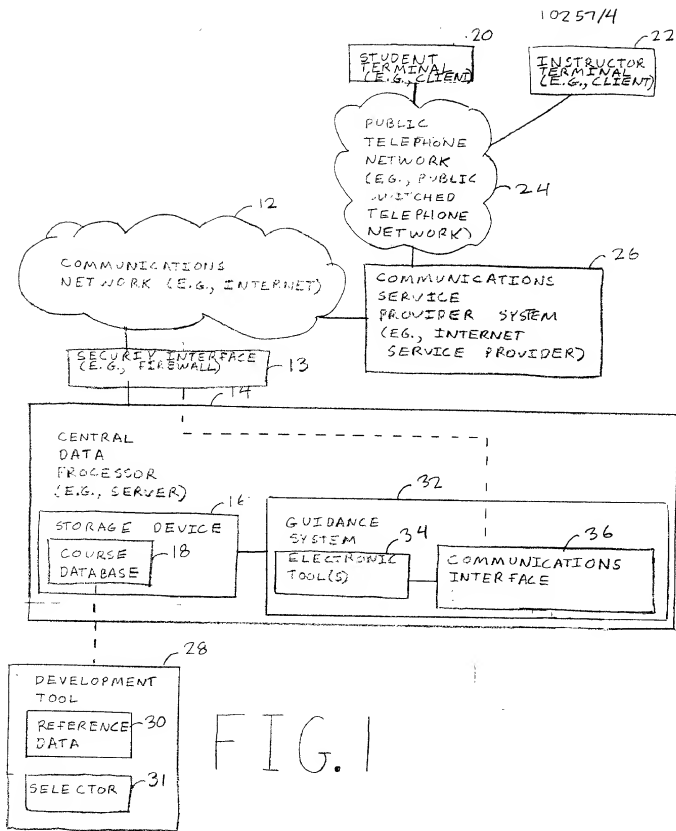 10257/4
20
STUDENT
TERMINAL
(E.G., CLIENT)
22
INSTRUCTOR
TERMINAL
(E.G., CLIENT)
PUBLIC
TELEPHONE
NETWORK
(E.G., PUBLIC
SWITCHED
TELEPHONE
NETWORK)
24
12
COMMUNICATIONS
NETWORK (E.G., INTERNET)
26
COMMUNICATIONS
SERVICE
PROVIDER SYSTEM
(EG., INTERNET
SERVICE PROVIDER)
SECURIY INTERFACE
(E.G., FIREWALL)
13
14
CENTRAL
DATA
PROCESSOR
(E.G., SERVER)
16
STORAGE DEVICE
COURSE
DATABASE
18
32
GUIDANCE
SYSTEM
34
ELECTRONIC
TOOL(S)
36
COMMUNICATIONS
INTERFACE
28
DEVELOPMENT
TOOL
REFERENCE
DATA
30
SELECTOR
31
FIG. 1